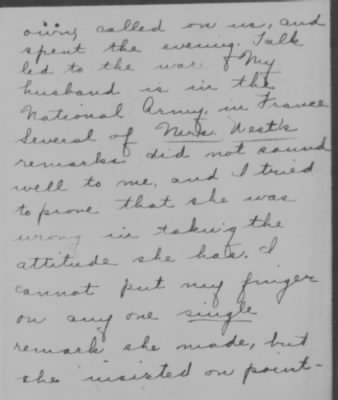 called on us, and
spent the evening. Talk
led to the war. My
husband is in the
National Army, in France
Several of Mrs. West's
remarks did not sound
well to me, and I tried
to prove that she was
wrong in taking the
attitude she has. I
cannot put my finger
on any one single
remark she made, but
she insisted on point-